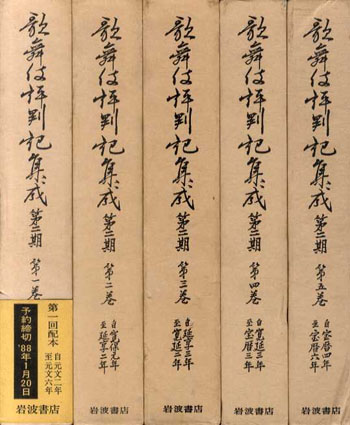 歌舞伎評判記集成 第二期 第一巻
第一回配本
自元文二年
至元文六年
予約締切'88年1月20日
岩波書店
歌舞伎評判記集成 第二期 第二巻
自寛保元年
至延享二年
岩波書店
歌舞伎評判記集成 第二期 第三巻
自延享三年
至寛延二年
岩波書店
歌舞伎評判記集成 第二期 第四巻
自寛延三年
至宝暦三年
岩波書店
歌舞伎評判記集成 第二期 第五巻
自宝暦四年
至宝暦六年
岩波書店